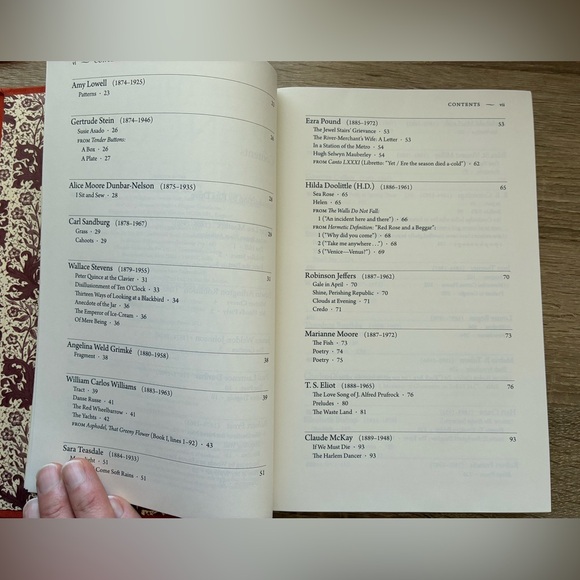 Amy Lowell (1874–1925)
Patterns · 23
Gertrude Stein (1874–1946)
Susie Asado · 26
FROM Tender Buttons:
A Box · 26
A Plate · 27
Alice Moore Dunbar-Nelson (1875–1935) 28
I Sit and Sew · 28
Carl Sandburg (1878–1967) 29
Grass · 29
Cahoots · 29
Wallace Stevens (1879–1955) 31
Peter Quince at the Clavier · 31
Disillusionment of Ten O'Clock · 33
Thirteen Ways of Looking at a Blackbird · 34
Anecdote of the Jar · 36
The Emperor of Ice-Cream · 36
Of Mere Being · 36
Angelina Weld Grimké (1880–1958) 38
Fragment · 38
William Carlos Williams (1883–1963) 39
Tract · 39
Danse Russe · 41
The Red Wheelbarrow · 41
The Yachts · 42
FROM Asphodel, That Greeny Flower (Book I, lines 1–92) · 43
Sara Teasdale (1884–1933) 51
· 51
Come Soft Rains · 51
CONTENTS — vii
Ezra Pound (1885–1972) 53
The Jewel Stairs' Grievance · 53
The River-Merchant's Wife: A Letter · 53
In a Station of the Metro · 54
Hugh Selwyn Mauberley · 54
FROM Canto LXXXI (Libretto: "Yet / Ere the season died a-cold") · 62
Hilda Doolittle (H.D.) (1886–1961) 65
Sea Rose · 65
Helen · 65
FROM The Walls Do Not Fall:
1 ("An incident here and there") · 66
FROM Hermetic Definition: "Red Rose and a Beggar":
1 ("Why did you come") · 68
2 ("Take me anywhere . . .") · 68
5 ("Venice—Venus?") · 69
Robinson Jeffers (1887–1962) 70
Gale in April · 70
Shine, Perishing Republic · 70
Clouds at Evening · 71
Credo · 71
Marianne Moore (1887–1972) 73
The Fish · 73
Poetry · 74
Poetry · 75
T. S. Eliot (1888–1965) 76
The Love Song of J. Alfred Prufrock · 76
Preludes · 80
The Waste Land · 81
Claude McKay (1889–1948) 93
If We Must Die · 93
The Harlem Dancer · 93